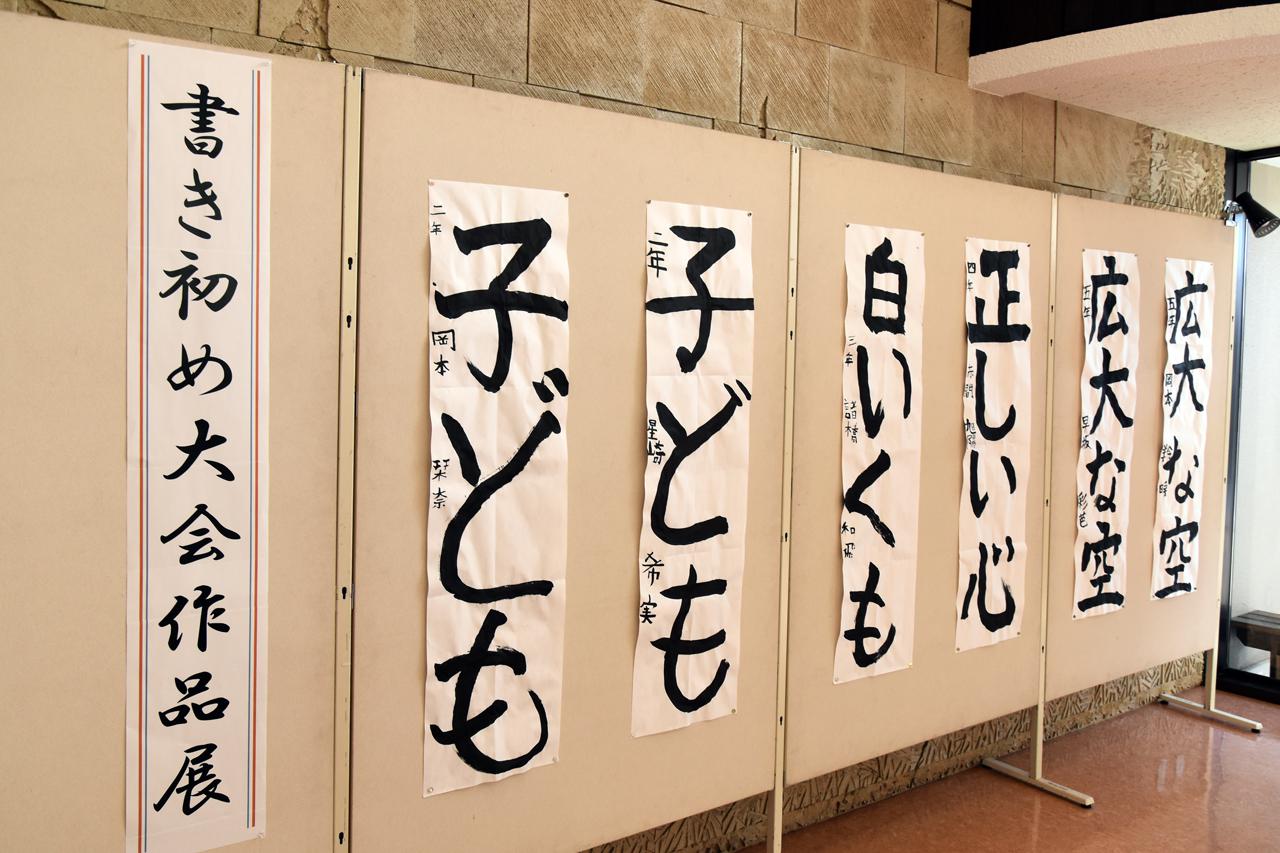 書き初め大会作品展
子ども
二年
岡本
栞奈
子ども
二年
星崎
希実
白いくも
三年
諸橋
正しい心
四年
広大な空
五年
早坂
彩芭
広大な空
五年
岡本